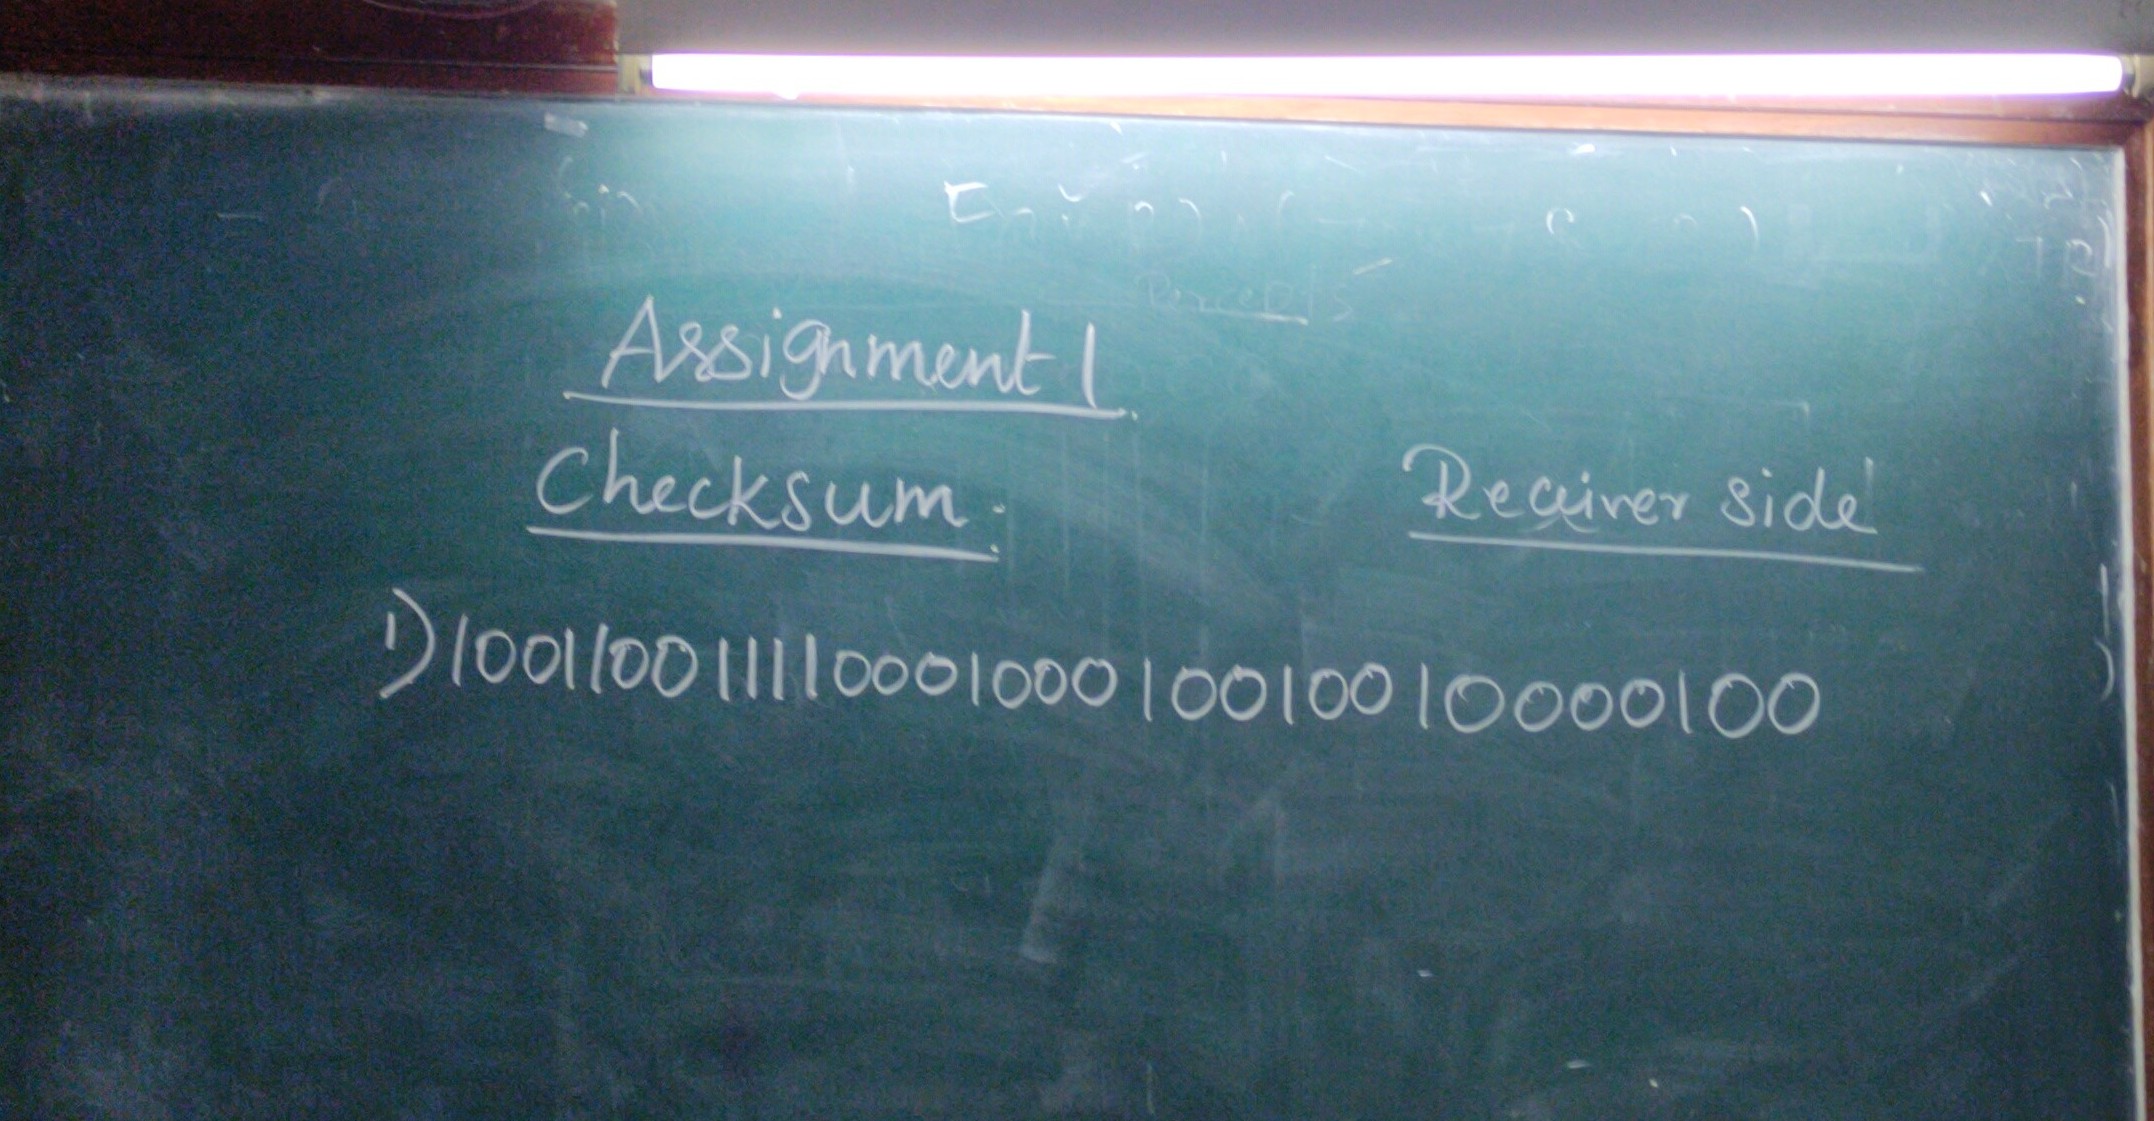 Assignment 1
Checksum. Receiver side
1) 10011001111000100010010010000100